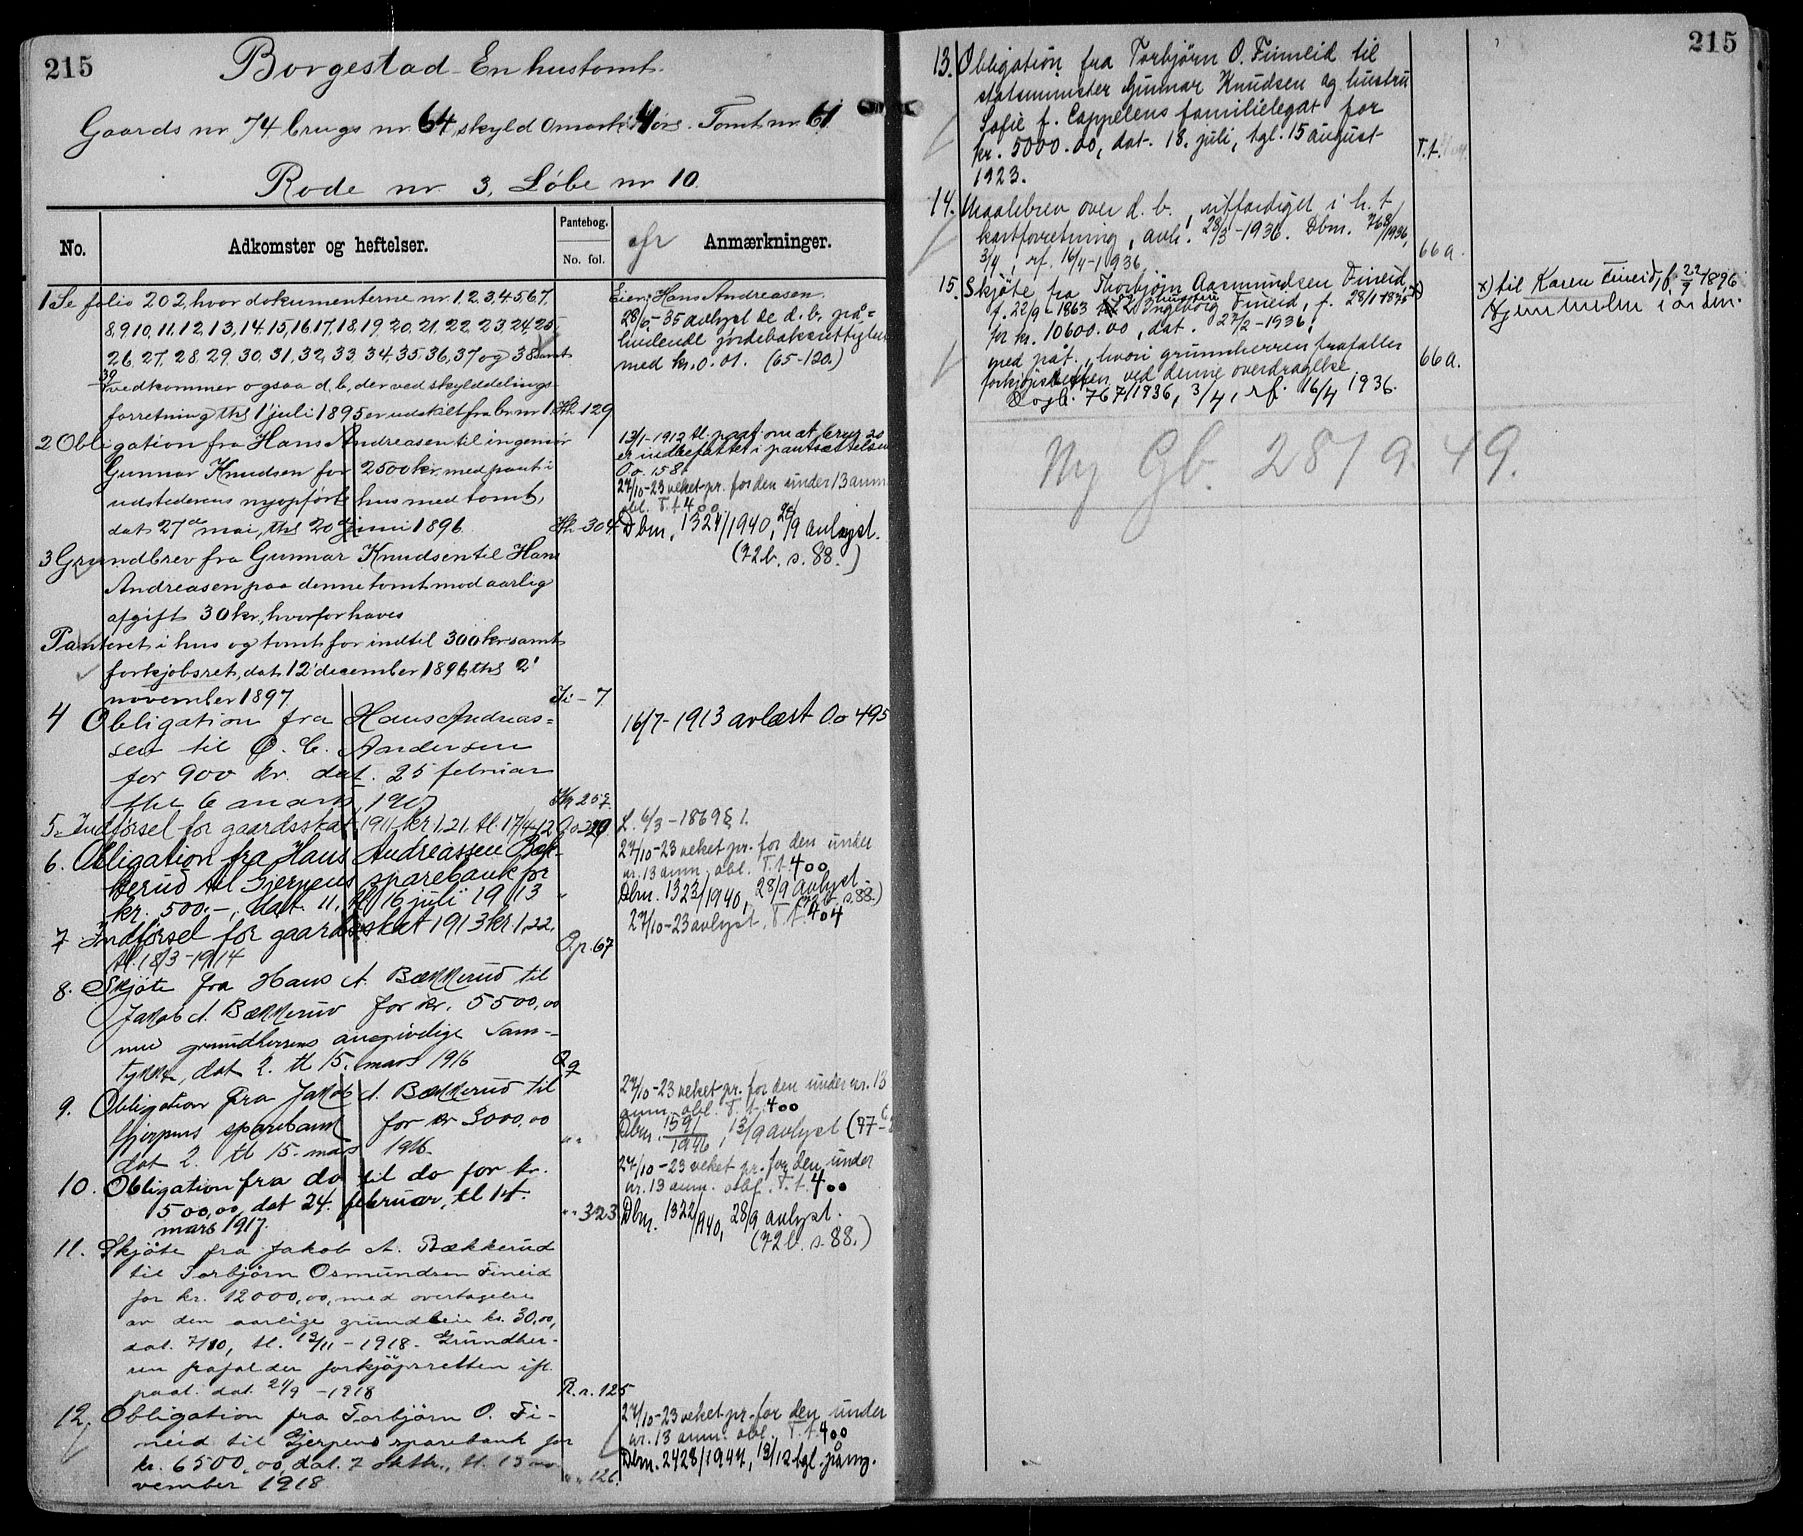 215
Borgestad - En hustomt.
Gaards nr 74 brugs nr 64, skyld 0 mark 4 öre. Tomt nr 61.
Rode nr 3, Löbe nr 10.
No.
Adkomster og heftelser.
Pantebog.
No. fol.
Anmærkninger.
1 Se folio 202, hvor dokumenterne nr. 1, 2, 3, 4, 5, 6, 7,
8, 9, 10, 11, 12, 13, 14, 15, 16, 17, 18, 19, 20, 21, 22, 23, 24, 25,
26, 27, 28, 29, 30, 31, 32, 33, 34, 35, 36, 37 og 38 samt
39
vedkommer ogsaa d. b., der ved skylddelings-
forretning thl 1' juli 1895 er udskilt fra br. nr 1. 129
Eier: Hans Andreasen.
28/5-35 avlyst de d. b. på-
hvilende jordeboksrettigheter
med kr. 0.01. (65-120.)
2 Obligation fra Hans Andreasen til ingeniör
Gunnar Knudsen for 2500 kr. med pant i
udstederens nyopförte hus med tomt,
dat 27de mai, thl 20de juni 1896. 304
13/1-1912 tl. paat. om at brnr 20
er indbefattet i pantsættelsen
O.o. 158.
27/10-23 veket pr. for den under 13 anm.
obl. T.t. 400
Dbm. 1324/1940, 28/9 avlyst.
(72b. s. 88.)
3 Grundbrev fra Gunnar Knudsen til Hans
Andreasen paa denne tomt mod aarlig
afgift 30 kr., hvorfor haves
Panteret i hus og tomt for indtil 300 kr samt
forkjöbsret, dat 12' december 1896, thl 2'
november 1897 7
4 Obligation fra Hans Andreas-
sen til O. C. Andersen
for 900 kr. dat. 25 februar
thl 6 marts 1907 257.
16/7-1913 avlæst O.o 495
5. Indförsel for gaardsskat 1911 kr 1.21. tl. 17/4-12 O.o 229
L. 6/3-1869 § 1.
6. Obligation fra Hans Andreassen Bæk-
kerud til Gjerpens sparebank for
kr. 500.-, dat. 11, tl. 16 juli 1913
27/10-23 veket pr. for den under
nr. 13 anm. obl. T.t. 400
Dbm. 1323/1940, 28/9 avlyst.
(72b. s. 88.)
7 Indförsel for gaardsskat 1913 kr. 1.22.
tl. 18/3-1914 O.p. 67
27/10-23 avlyst. T.t. 404
8. Skjöte fra Hans A. Bækkerud til
Jakob A. Bækkerud for kr. 5500,00
med grundherrens angivelige sam-
tykke, dat 2. tl 15. mars 1916
9. Obligation fra Jakob A. Bækkerud til
Gjerpens sparebank for kr 3000,00
dat 2. tl 15. mars 1916.
27/10-23 veket pr. for den under nr. 13
anm. obl. T.t. 400
Dbm. 1591/1946, 13/9 avlyst
10. Obligation fra do til do for kr.
500,00, dat 24. februar, tl 14.
mars 1917. " 323
27/10-23 veket pr. for den under
nr. 13 anm. obl. T.t. 400
Dbm. 1322/1940, 28/9 avlyst.
(72b. s. 88.)
11. Skjöte fra Jakob A. Bækkerud
til Torbjörn Osmundsen Fineid
for kr. 12000,00, med overtagelse
av den aarlige grundleie kr. 30,00,
dat. 7/10, tl. 13/11-1918. Grundher-
ren frafalder forkjöpsretten ifl.
paat. dat. 21/9-1918 R.r. 125
12. Obligation fra Torbjörn O. Fi-
neid til Gjerpens sparebank for
kr. 6500,00 dat. 7 oktbr., tl. 13 no-
vember 1918 " 126.
27/10-23 veket pr. for den under
nr. 13 anm. obl. T.t. 400
Dbm. 2428/1944, 13/12 tgl. påmg.
215
13. Obligation fra Torbjörn O. Fineid til
statsminister Gunnar Knudsen og hustru
Sofie f. Cappelens familielegat for
kr. 5000.00, dat. 18. juli, tgl. 15 august
1923. T.t.
14. Maalebrev over d. b., utferdiget i h. t.
kartforretning, avh. 28/3-1936. Dbm. 768/1936,
3/4, rf. 16/4-1936. 66a.
15. Skjöte fra Thorbjörn Aasmundsen Fineid,
f. 22/9-1863 Ingeborg Fineid, f. 28/1-1875 x)
for kr. 10600.00, dat. 27/2-1936,
med påt., hvori grunnherren frafaller
forkjöpsretten ved denne overdragelse.
Dagb. 767/1936, 3/4, rf. 16/4 1936. 66a.
x) til Karen Fineid, f. 22/7 1896
Hjemmelen i orden.
Ny Gb. 28/9 49.